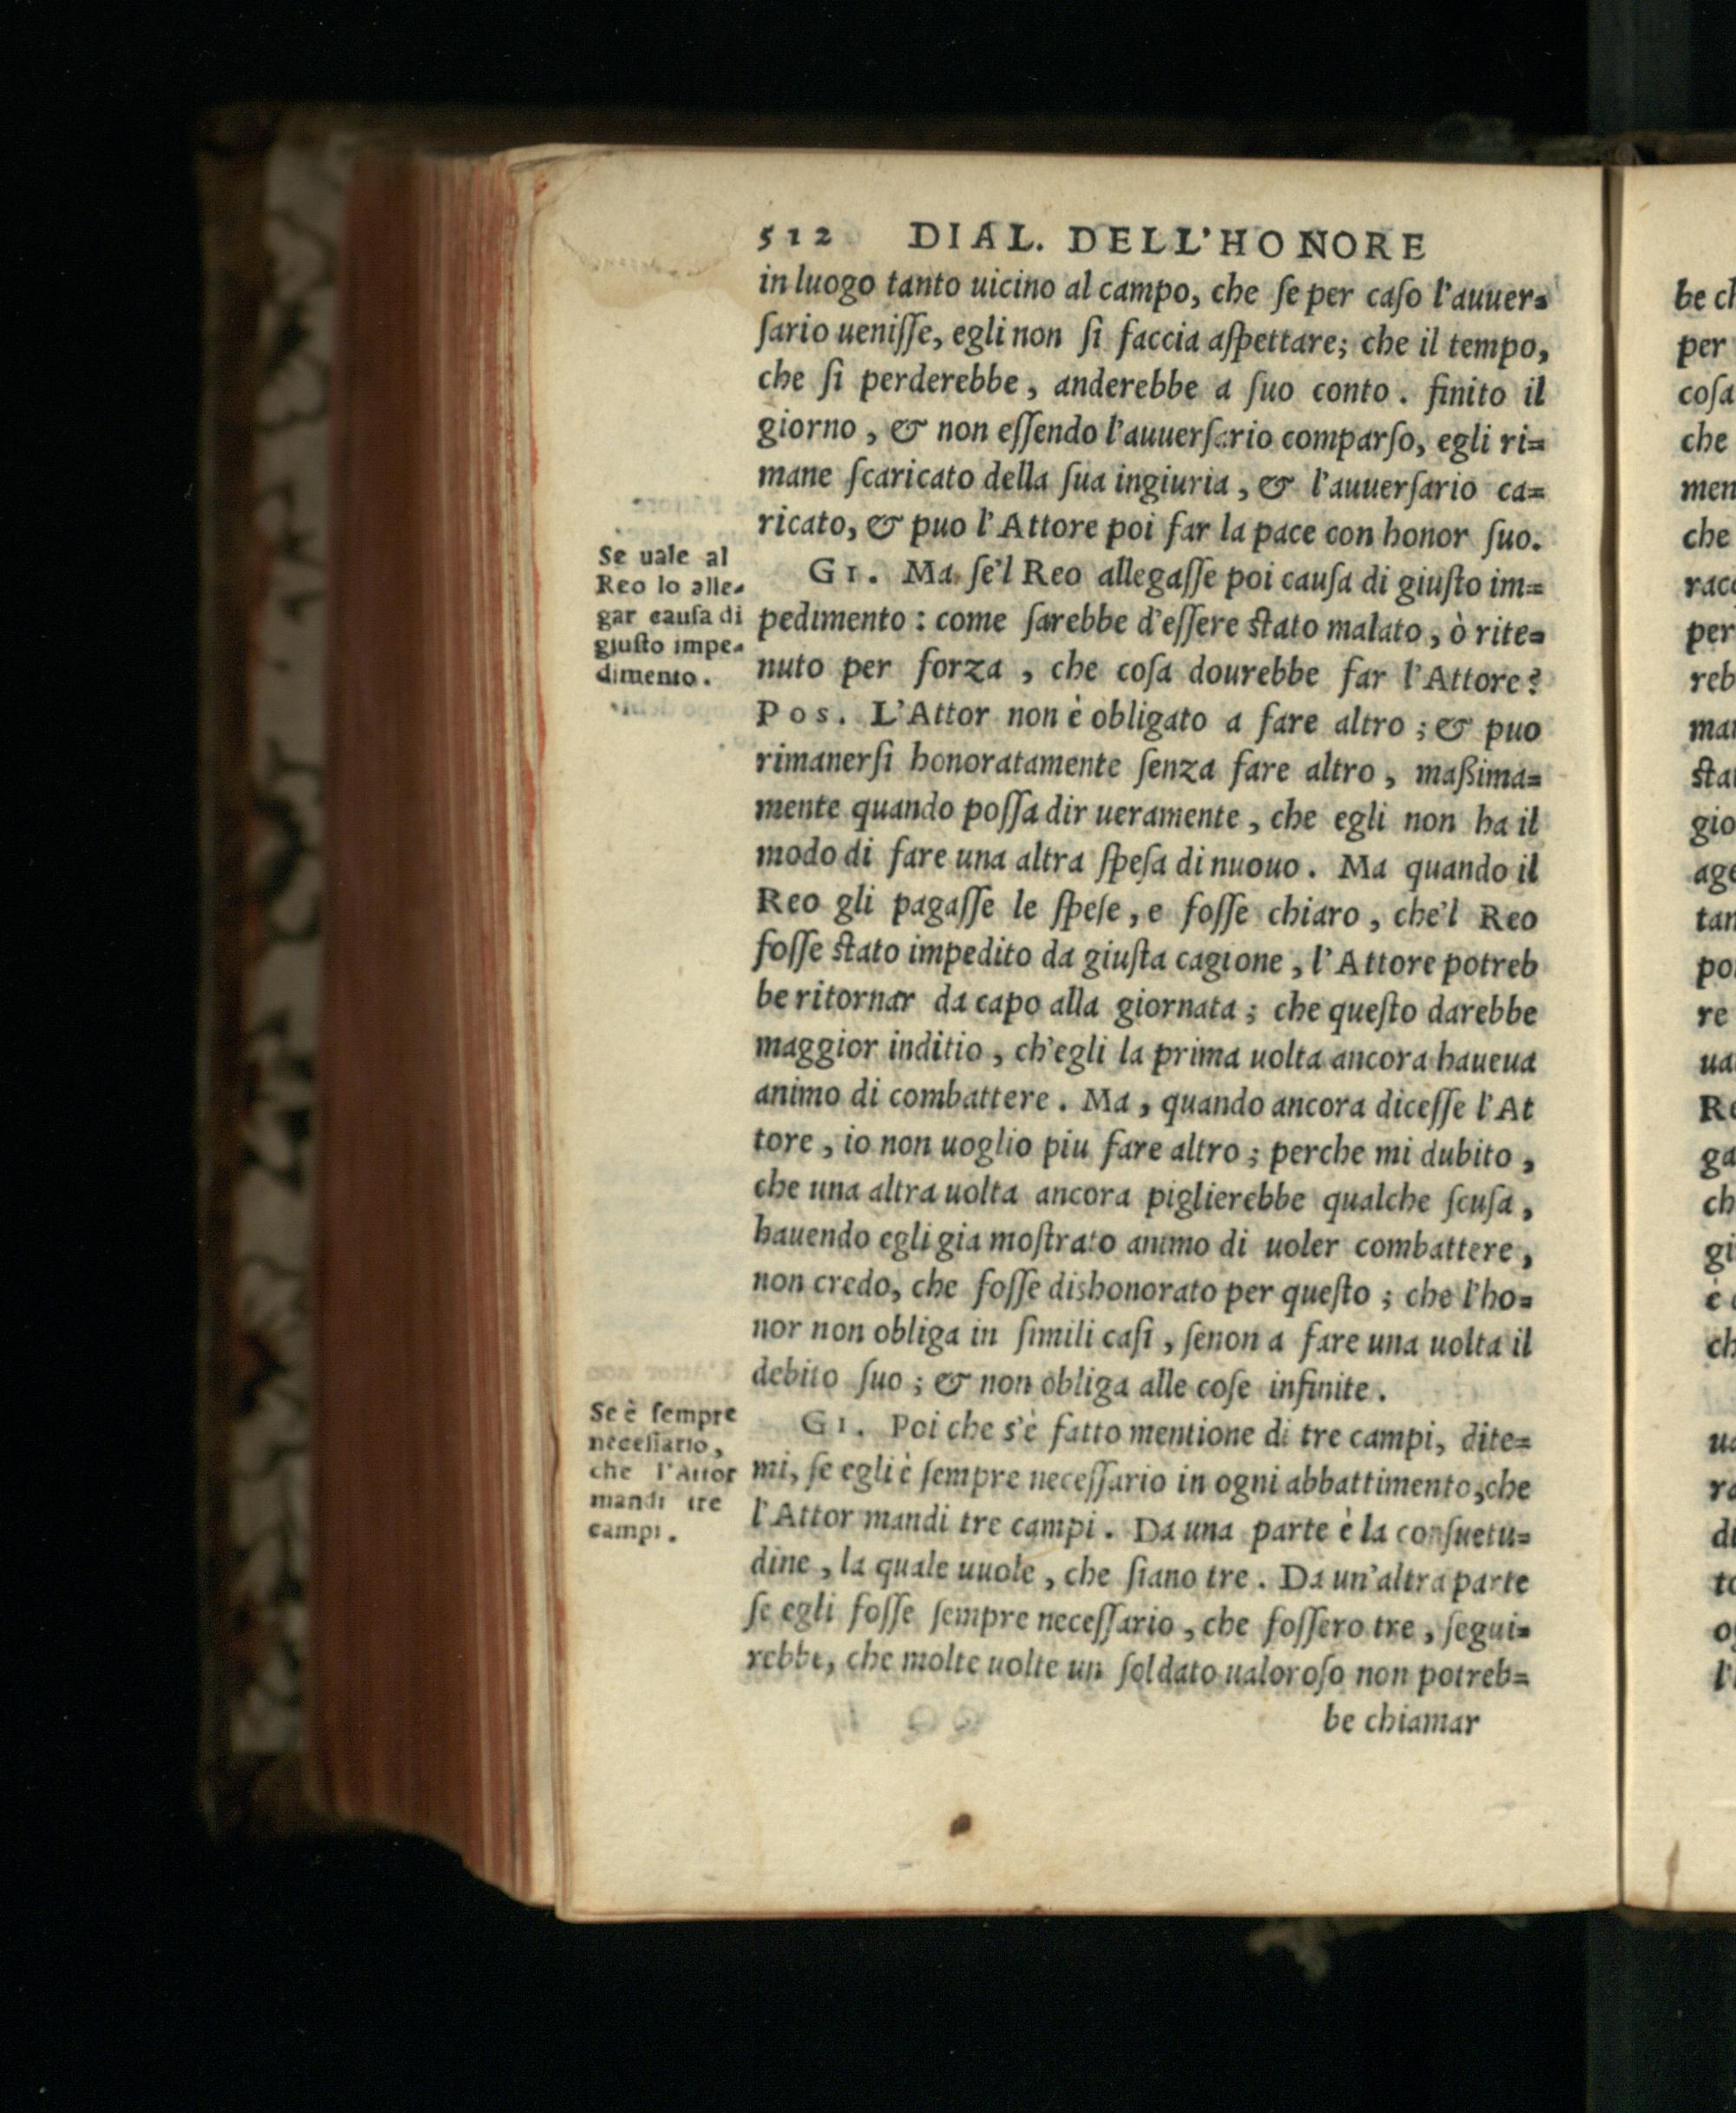 512 DIAL. DELL'HONORE
in luogo tanto uicino al campo, che ſe per caſo l'auuer=
ſario ueniſſe, egli non ſi faccia aſpettare; che il tempo,
che ſi perderebbe, anderebbe a ſuo conto. finito il
giorno, & non eſſendo l'auuerſario comparſo, egli ri=
mane ſcaricato della ſua ingiuria, & l'auuerſario ca=
ricato, & puo l'Attore poi far la pace con honor ſuo.
Se uale al
Reo lo alle=
gar cauſa di
giuſto impe=
dimento.
GI. Ma ſe'l Reo allegaſſe poi cauſa di giuſto im=
pedimento: come ſarebbe d'eſſere ſtato malato, ò rite=
nuto per forza, che coſa dourebbe far l'Attore?
Pos. L'Attor non è obligato a fare altro; & puo
rimanerſi honoratamente ſenza fare altro, maßima=
mente quando poſſa dir ueramente, che egli non ha il
modo di fare una altra ſpeſa di nuouo. Ma quando il
Reo gli pagaſſe le ſpeſe, e foſſe chiaro, che'l Reo
foſſe ſtato impedito da giuſta cagione, l'Attore potreb
be ritornar da capo alla giornata; che queſto darebbe
maggior inditio, ch'egli la prima uolta ancora haueua
animo di combattere. Ma, quando ancora diceſſe l'At
tore, io non uoglio piu fare altro; perche mi dubito,
che una altra uolta ancora piglierebbe qualche ſcuſa,
hauendo egli gia moſtrato animo di uoler combattere,
non credo, che foſſe dishonorato per queſto; che l'ho=
nor non obliga in ſimili caſi, ſenon a fare una uolta il
debito ſuo; & non obliga alle coſe infinite.
Se è ſempre
neceſſario,
che l'Attor
mandi tre
campi.
GI. Poi che s'è fatto mentione di tre campi, dite=
mi, ſe egli è ſempre neceſſario in ogni abbattimento, che
l'Attor mandi tre campi. Da una parte è la conſuetu=
dine, la quale uuole, che ſiano tre. Da un'altra parte
ſe egli foſſe ſempre neceſſario, che foſſero tre, ſegui=
rebbe, che molte uolte un ſoldato ualoroſo non potreb=
be chiamar
be ch
per
coſa
che
men
che
race
per
reb
mar
ſtat
gio
age
tan
por
re
ua
Re
ga
ch
gi
è
ch
ua
ra
di
to
og
l'